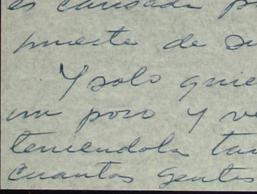 es causada p
muerte de su
Y solo quie
un poco y ve
teniendola tan
cuantas gentes